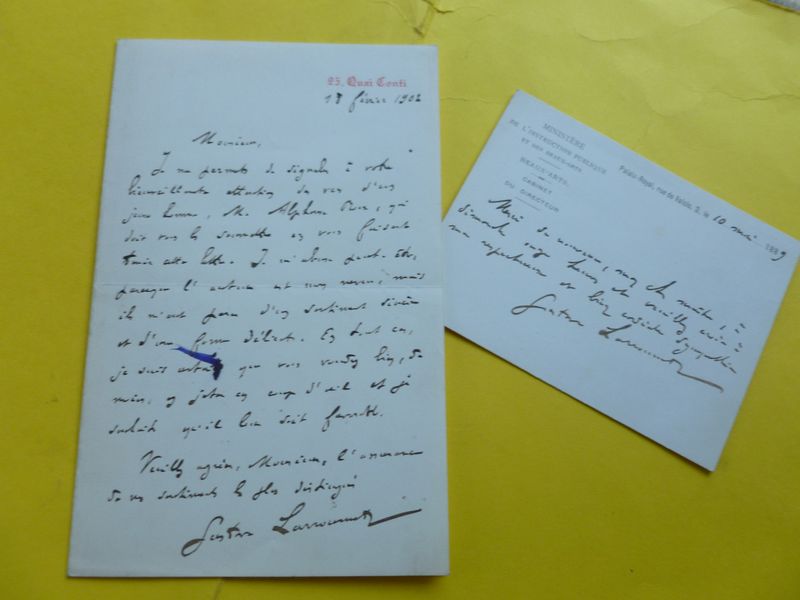 25, Quai Conti
18 février 1902
Monsieur,
Je me permets de signaler à votre
bienveillante attention des vers d'un
jeune homme, M. Alphonse qui
doit vous les soumettre en vous faisant
tenir cette lettre. Je m'abuse peut-être,
parce que l'auteur est mon neveu, mais
ils m'ont paru d'un sentiment sincère
et d'une forme délicate. En tout cas,
je suis que vous voudrez bien, du
moins, y jeter un coup d'œil et je
souhaite qu'il leur soit favorable.
Veuillez agréer, Monsieur, l'assurance
de mes sentiments les plus distingués
Gustave Larroumet
MINISTÈRE
DE L'INSTRUCTION PUBLIQUE
ET DES BEAUX-ARTS
BEAUX-ARTS
CABINET
DU DIRECTEUR
Palais-Royal, rue de Valois, 3, le 10 mai 1889
Merci de nouveau, mon cher maître, à
dimanche onze heures et veuillez croire à
ma respectueuse et bien cordiale sympathie
Gustave Larroumet